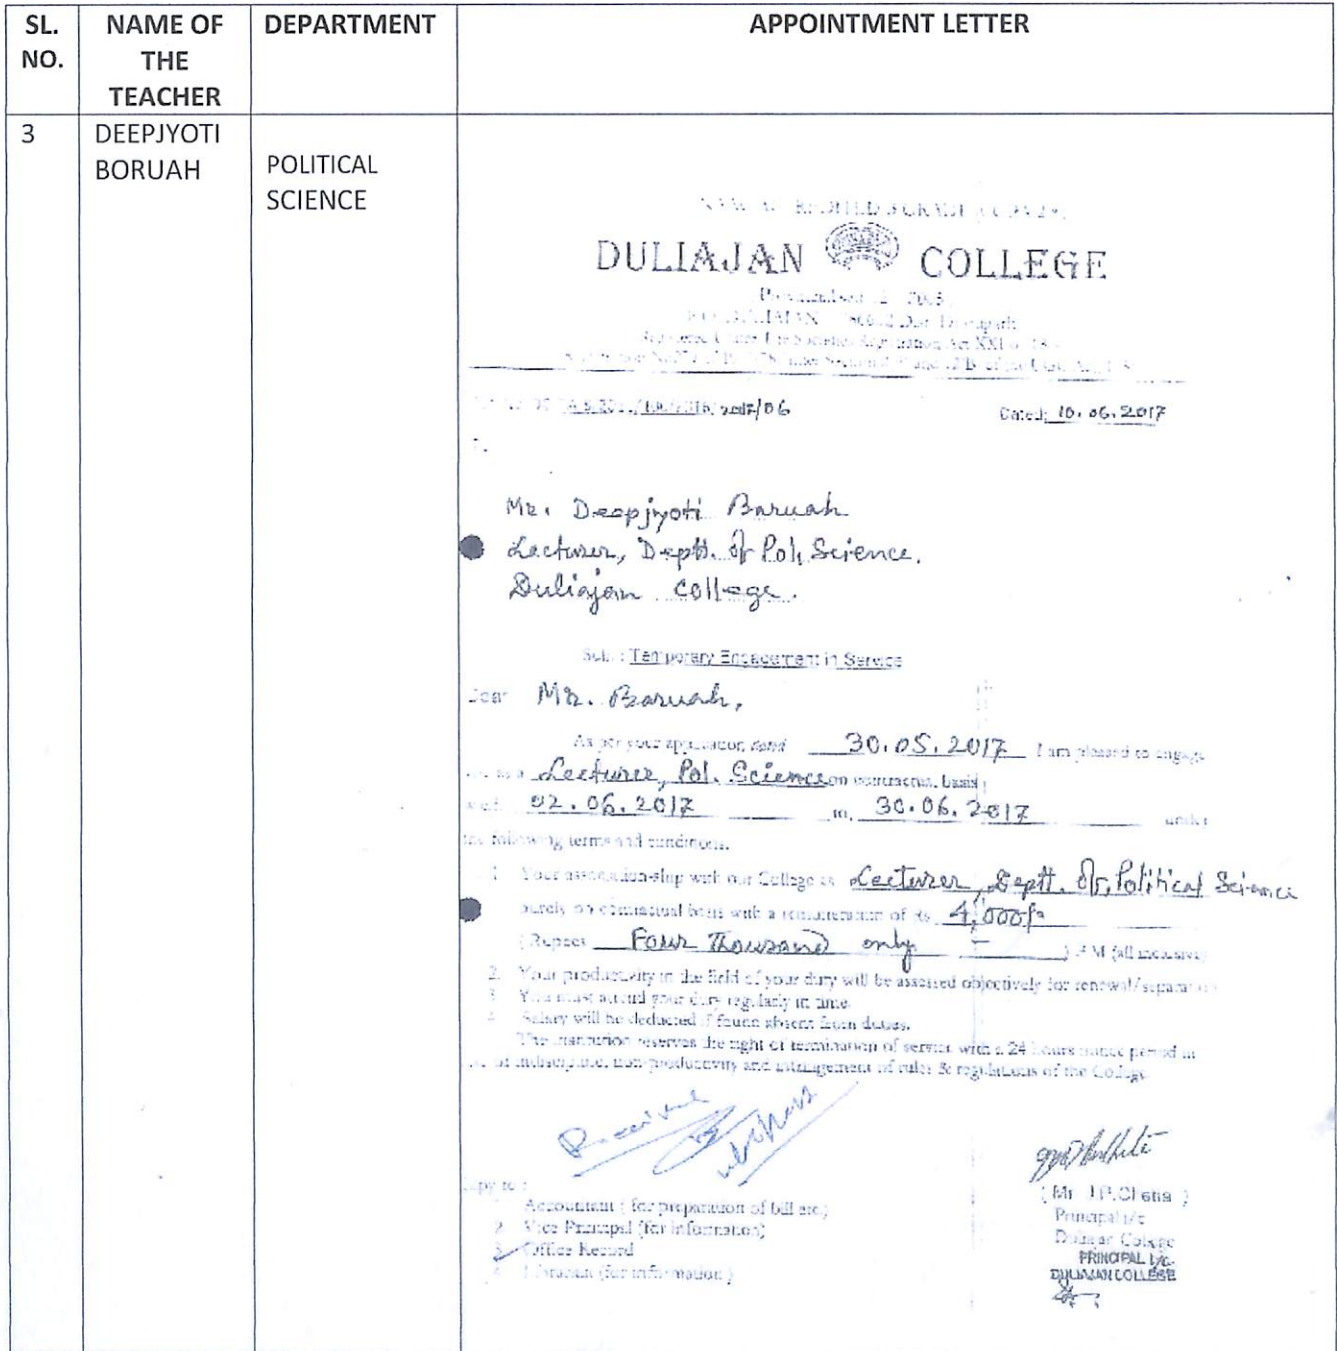 SL. NO.
NAME OF THE TEACHER
DEPARTMENT
APPOINTMENT LETTER
3
DEEPJYOTI BORUAH
POLITICAL SCIENCE
DULIAJAN COLLEGE
/06
Dated: 10.06.2017
Mr. Deepjyoti Baruah
Lecturer, Deptt. of Pol. Science.
Duliajan College.
Sub. : Temporary Engagement in Service
Dear Mr. Baruah,
As per your application dated 30.05.2017 I am pleased to engage
Lecturer, Pol. Science on contractual basis
02.06.2017 to 30.06.2017 under
the following terms and conditions.
1. Your association-ship with our College as Lecturer, Deptt. of Political Science
purely on contractual basis with a remuneration of Rs 4,000/-
(Rupees Four Thousand only ) P.M (all inclusive)
2. Your productivity in the field of your duty will be assessed objectively for renewal/separation
3. You must attend your duty regularly in time.
4. Salary will be deducted if found absent from duties.
The institution reserves the right of termination of service with a 24 hours notice period in
non-productivity and infringement of rules & regulations of the College
Received
Copy to :
Accountant (for preparation of bill etc)
2. Vice Principal (for information)
3. Office Record
4. Librarian (for information)
Principal i/c
Duliajan College
PRINCIPAL I/c.
DULIAJAN COLLEGE